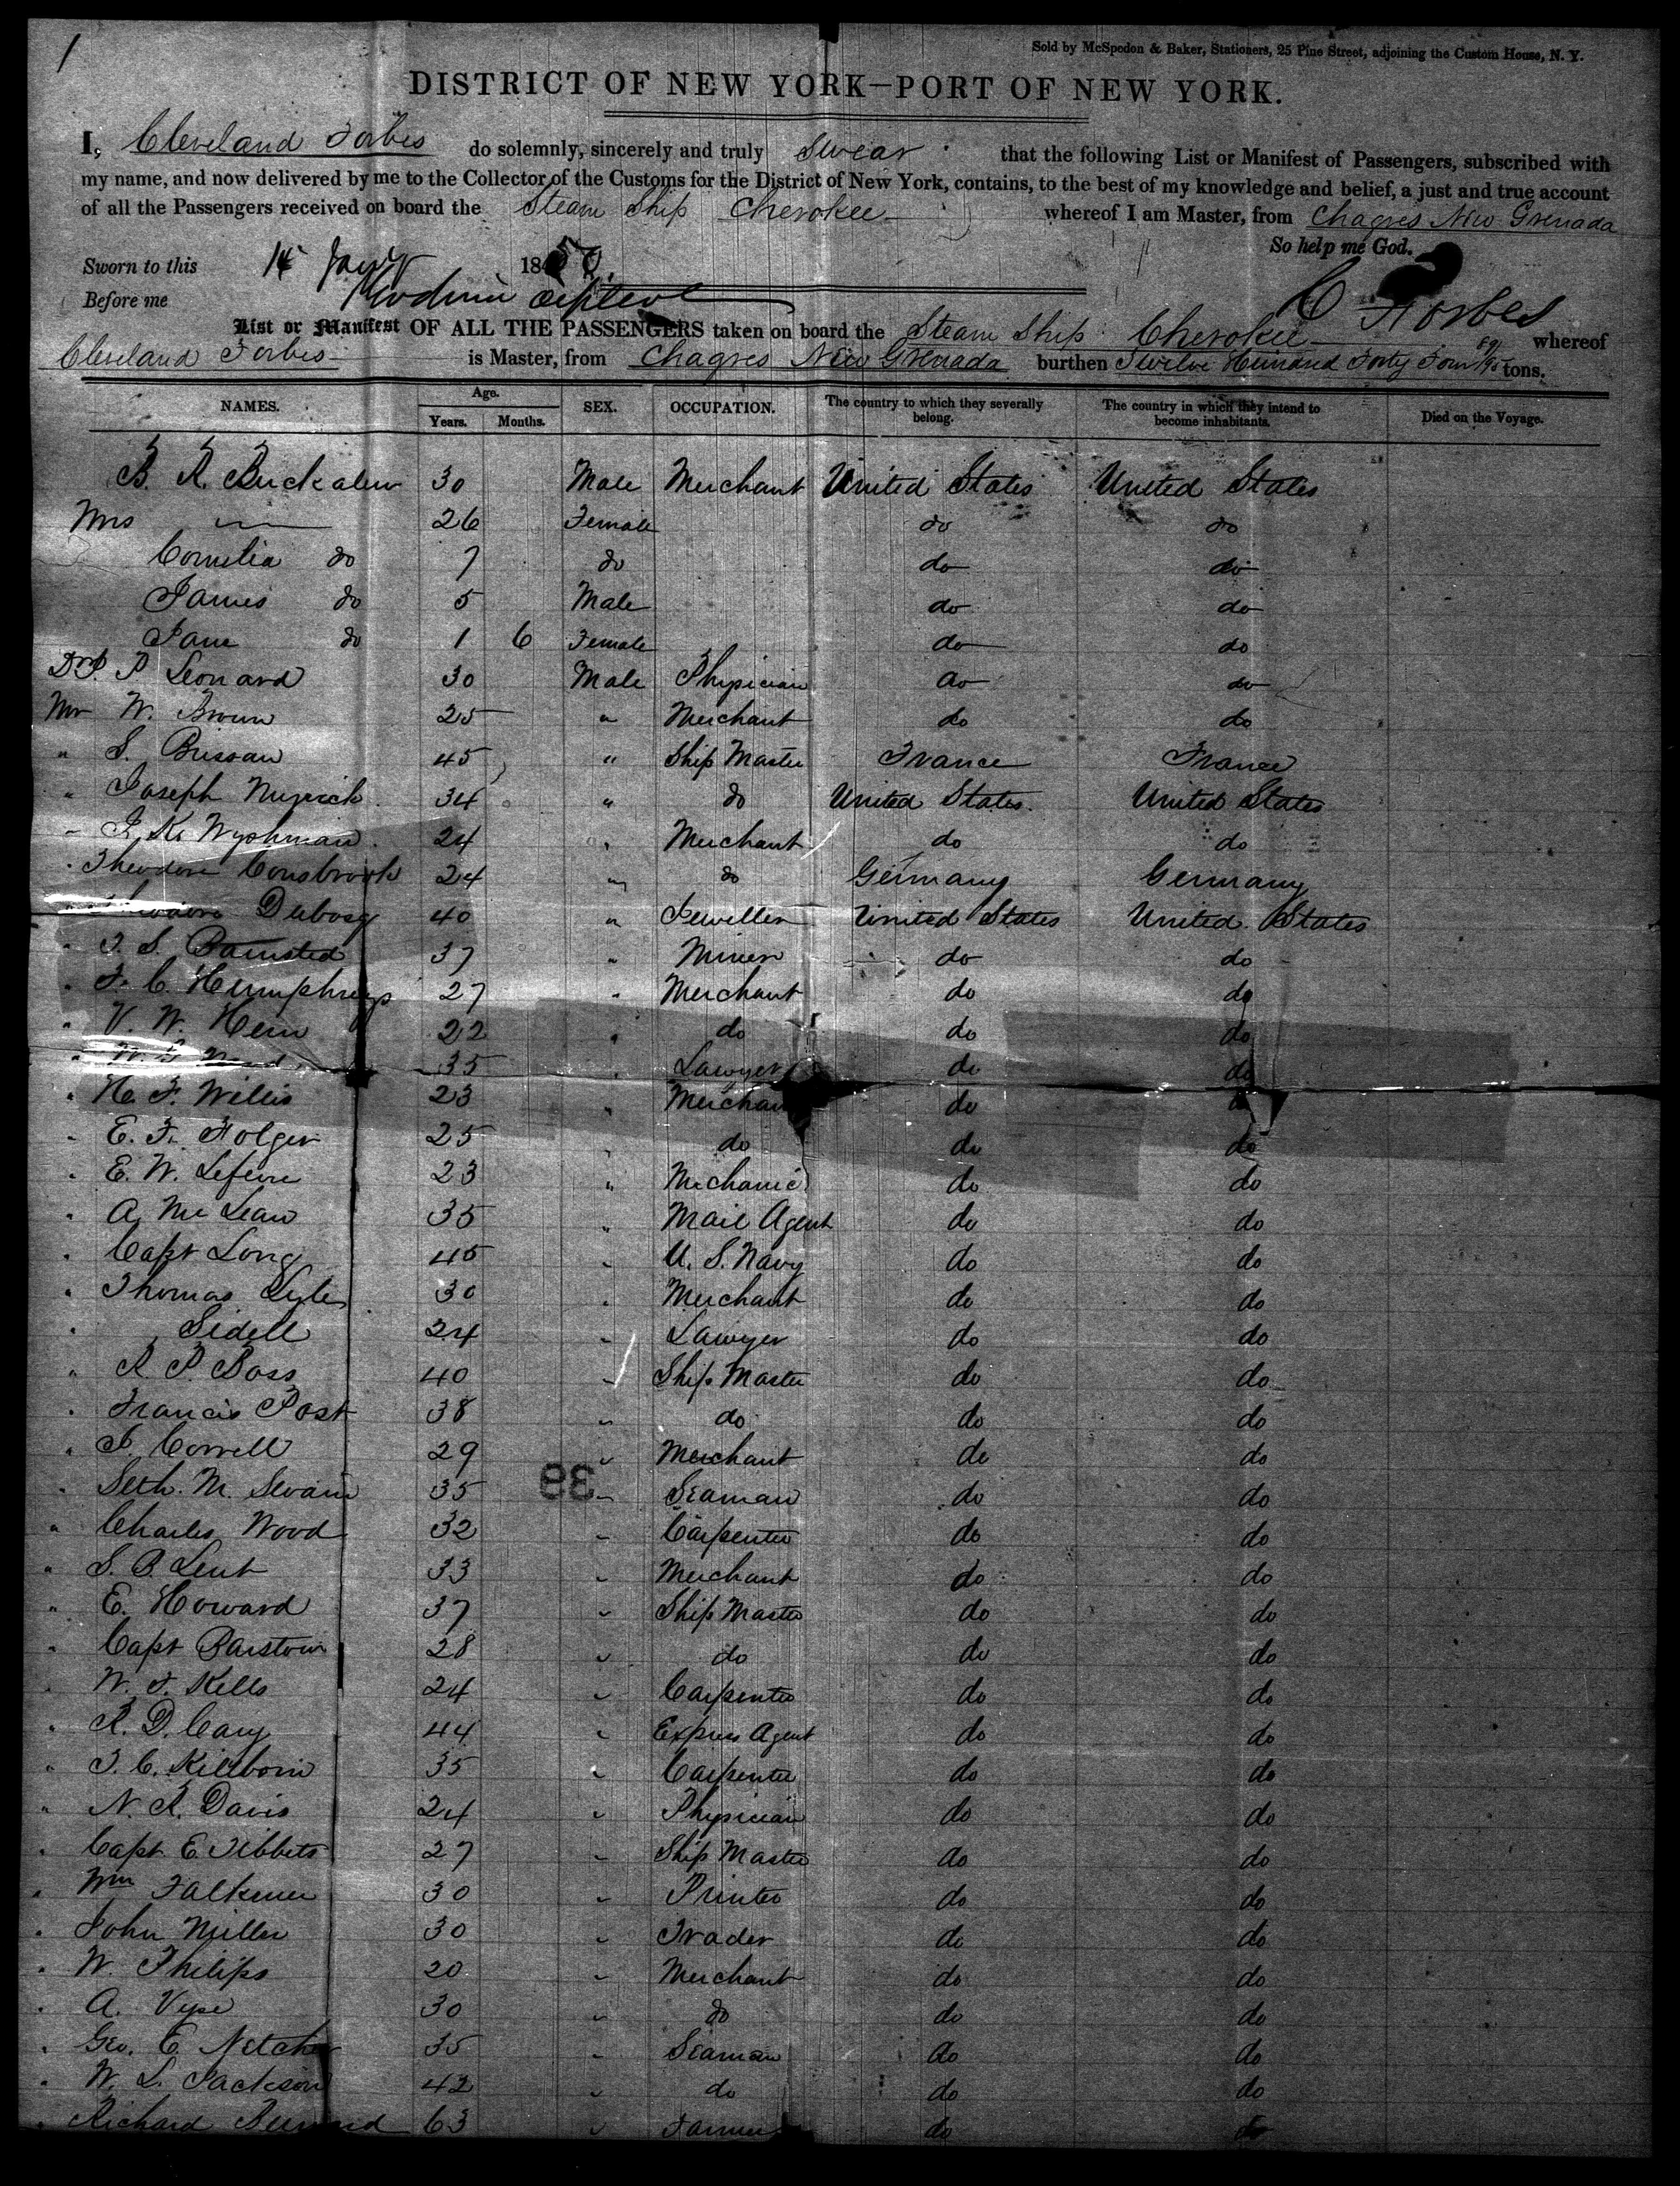 1
Sold by McSpedon & Baker, Stationers, 25 Pine Street, adjoining the Custom House, N. Y.
DISTRICT OF NEW YORK—PORT OF NEW YORK.
I, Cleveland Forbes do solemnly, sincerely and truly swear that the following List or Manifest of Passengers, subscribed with
my name, and now delivered by me to the Collector of the Customs for the District of New York, contains, to the best of my knowledge and belief, a just and true account
of all the Passengers received on board the Steam Ship Cherokee whereof I am Master, from Chagres New Grenada
So help me God.
Sworn to this 14 Jany 1850.
Before me
C Forbes
List or Manifest OF ALL THE PASSENGERS taken on board the Steam Ship Cherokee whereof
Cleveland Forbes is Master, from Chagres New Grenada burthen Twelve Hundred Forty Four 89/95 tons.
NAMES. Age. Years. Months. SEX. OCCUPATION. The country to which they severally belong. The country in which they intend to become inhabitants. Died on the Voyage.
B. R. Buckalew 30 Male Merchant United States United States
Mrs — 26 Female do do
Cornelia do 7 do do do
James do 5 Male do do
Jane do 1 6 Female do do
Dr. P Leonard 30 Male Physician do do
Mr W. Brown 25 " Merchant do do
" S. Brissan 45 " Ship Master France France
" Joseph Myrick 34 " do United States United States
" J. K. Wyohman 24 " Merchant do do
" Theodore Consbrook 24 " do Germany Germany
Dubosq 40 " Jeweller United States United States
" T. S. 37 " Miner do do
" F. C. Humphreys 27 " Merchant do do
" V. W. Hern 22 " do do do
" 35 " Lawyer do do
" H. F. Willis 23 " Merchant do do
" E. F. Folger 25 " do do do
" E. W. Lefevre 23 " Mechanic do do
" A Mc Lean 35 " Mail Agent do do
" Capt Long 45 " U. S. Navy do do
" Thomas Lyle 30 " Merchant do do
" Sidell 24 " Lawyer do do
" R. P. Bass 40 " Ship Master do do
" Francis Post 38 " do do do
" J. Correll 29 " Merchant do do
" Seth. M. Swain 35 " Seaman do do
" Charles Wood 32 " Carpenter do do
" S. B. Lent 33 " Merchant do do
" E. Howard 37 " Ship Master do do
" Capt Barstow 28 " do do do
" W. F. Kells 24 " Carpenter do do
" R. D. Cary 44 " Express Agent do do
" T. C. Kilborn 35 " Carpenter do do
" N. R. Davis 24 " Physician do do
" Capt E Tibbets 27 " Ship Master do do
" Wm Falkner 30 " Printer do do
" John Miller 30 " Trader do do
" W. Philips 20 " Merchant do do
" A. Vyse 30 " do do do
" Geo. E. Netcher 35 " Seaman do do
" W. L. Jackson 42 " do do do
" Richard 63 " Farmer do do